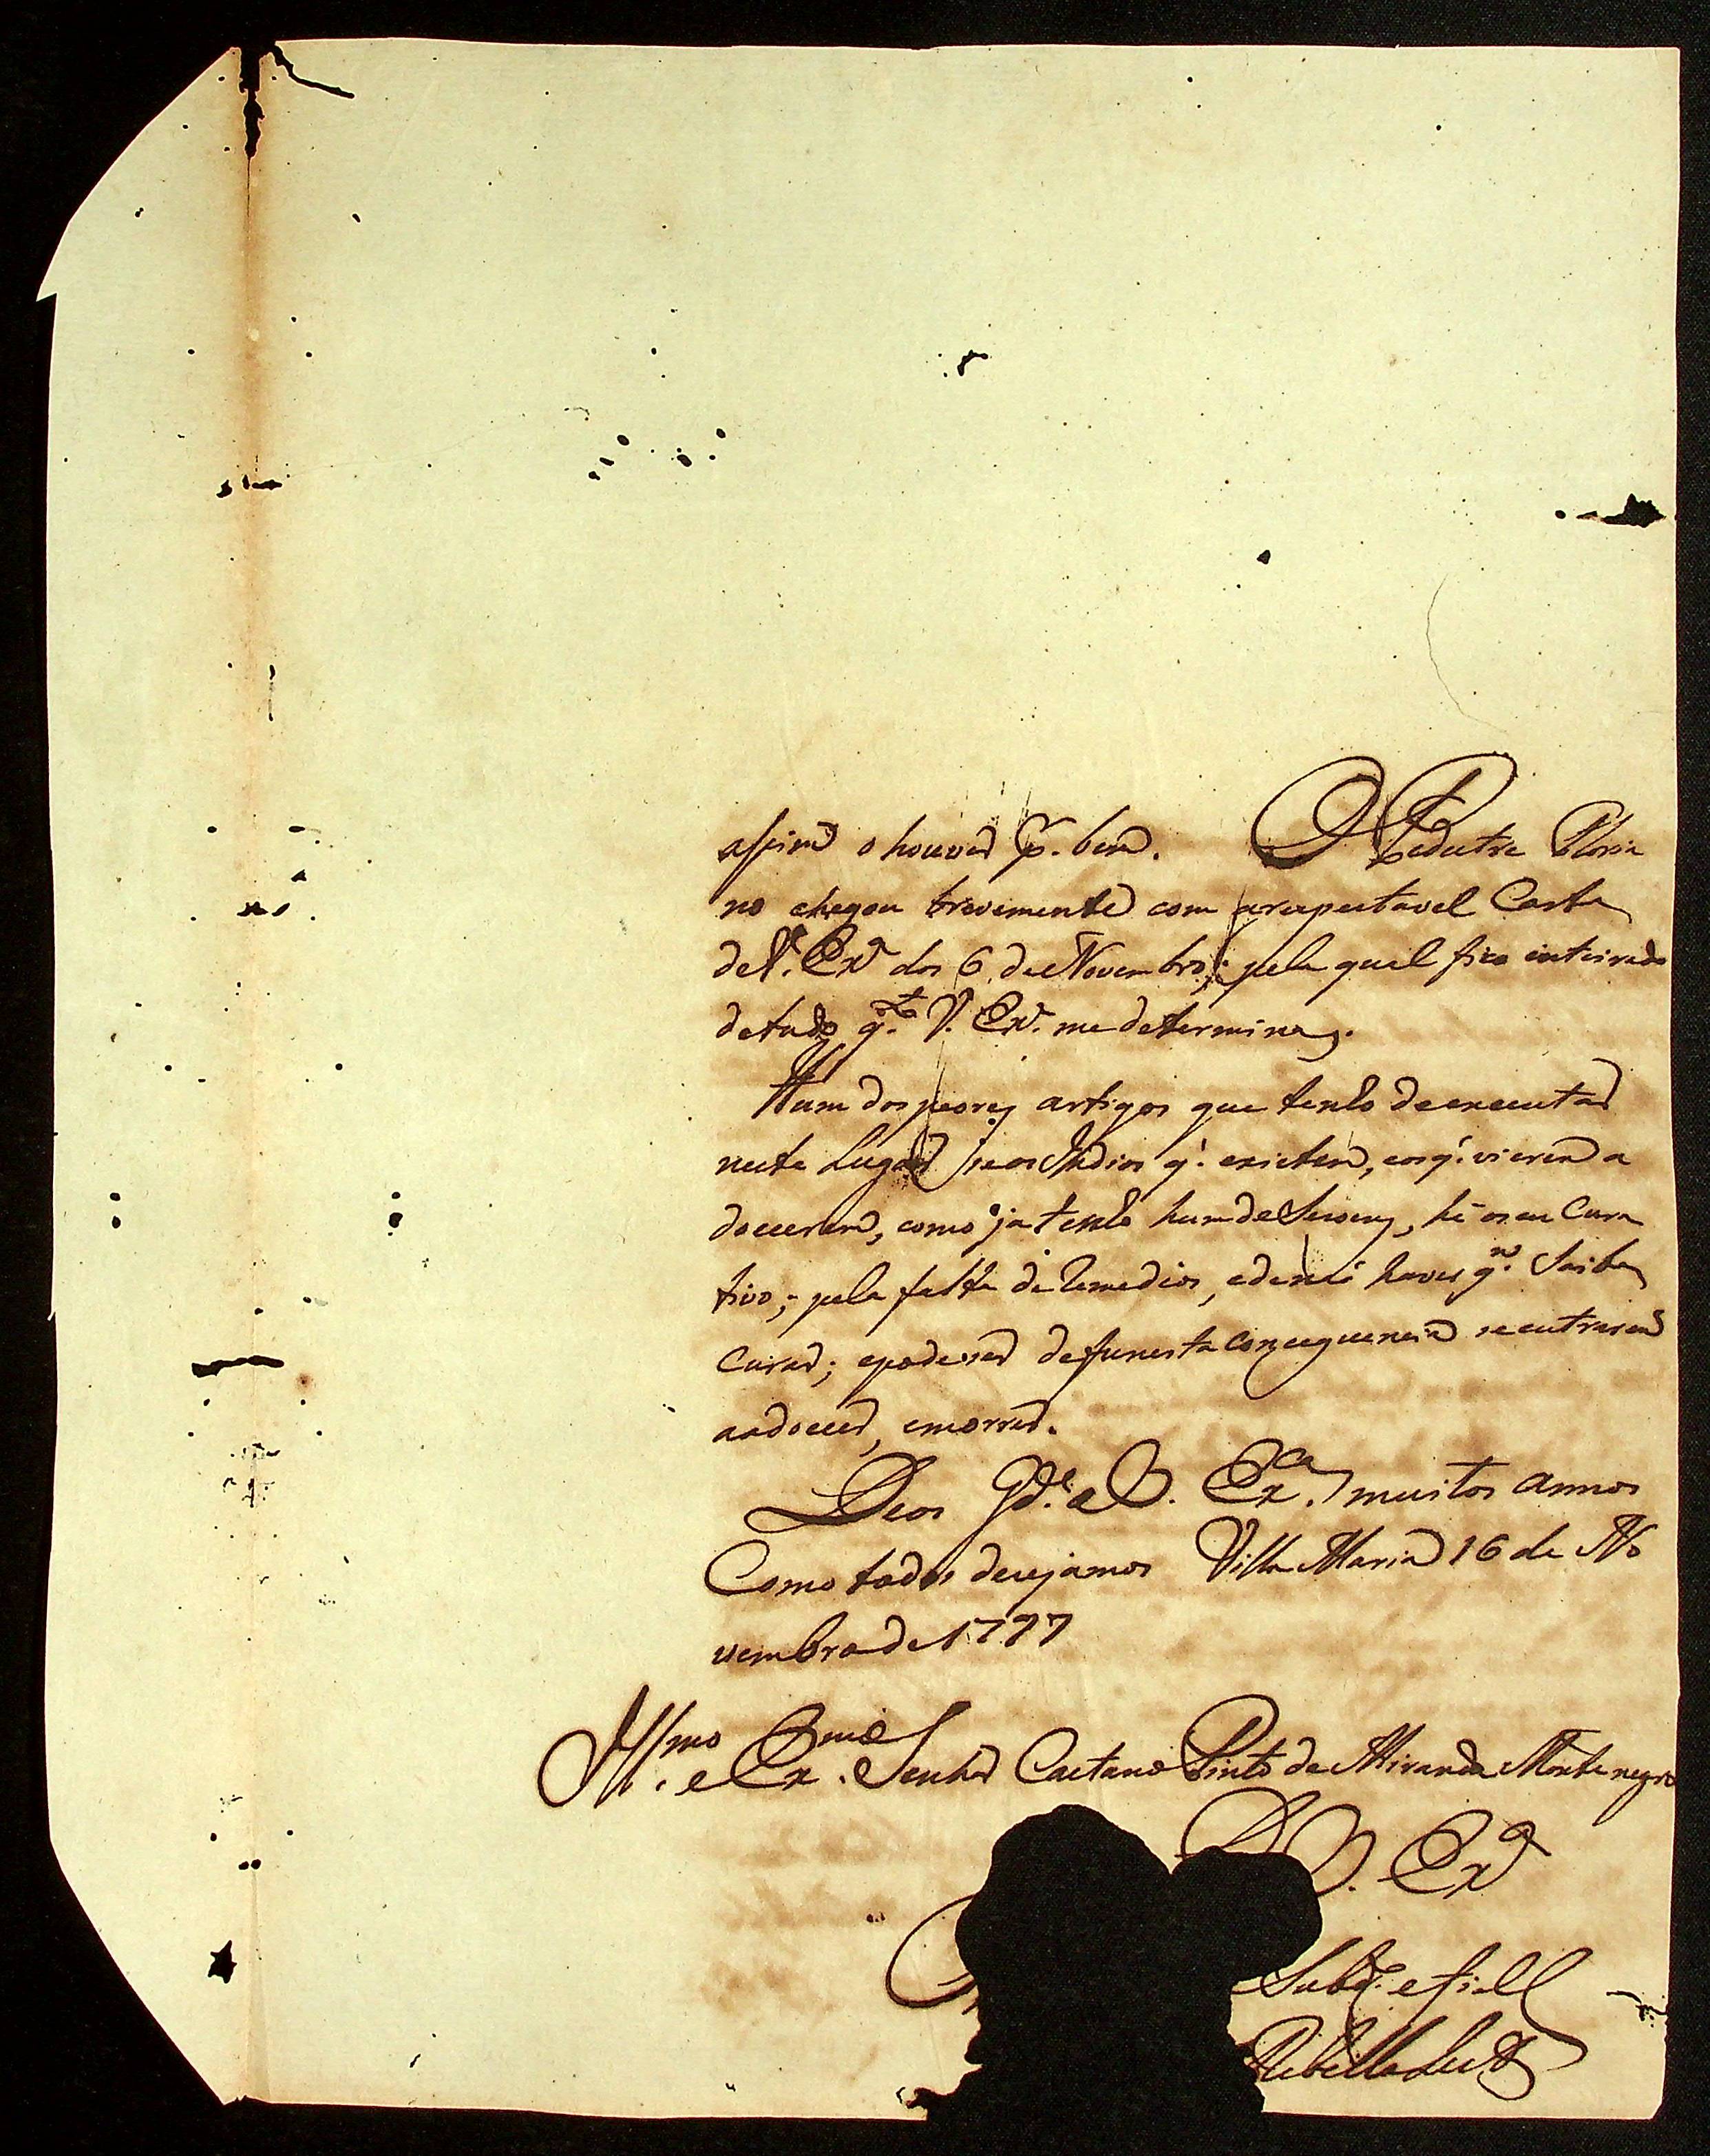 assim o houver p.r bem. O Pedestre Floria
no chegou brevemente com a respeitavel Carta
de V. Ex.a dos 6 de Novembro; pela qual fico inteirado
de tudo q.to V. Ex.a me determina.
Hum dos peores artigos que tenho de executar
neste Lugar se os Indios q' existem, e os q' vierem a
doecerem, como ja tenho hum de , hé o seu Cura
tivo; pela falta de Remedios, e de não haver q.m Saiba
Curar; e poderá de funesta conseguencia se entrarem
a adoecer, e morrer.
Deos G.de a V. Ex.ca muitos annos
Como todos desejamos Villa Maria 16 de No
vembro de 1797
Ill.mo e Ex.mo Senhor Caetano Pinto de Miranda Montenegro
D V. Ex.a
Subd.o e fiel
Rebello Leite